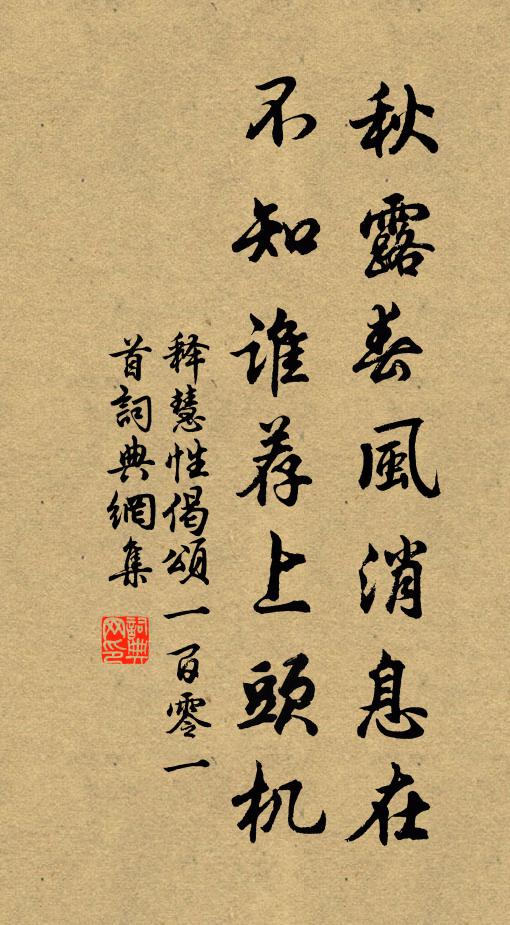 秋露春風消息在
不知誰荐上頭机
释慧性偈頌一百零一
首詞典網集
詞典网印